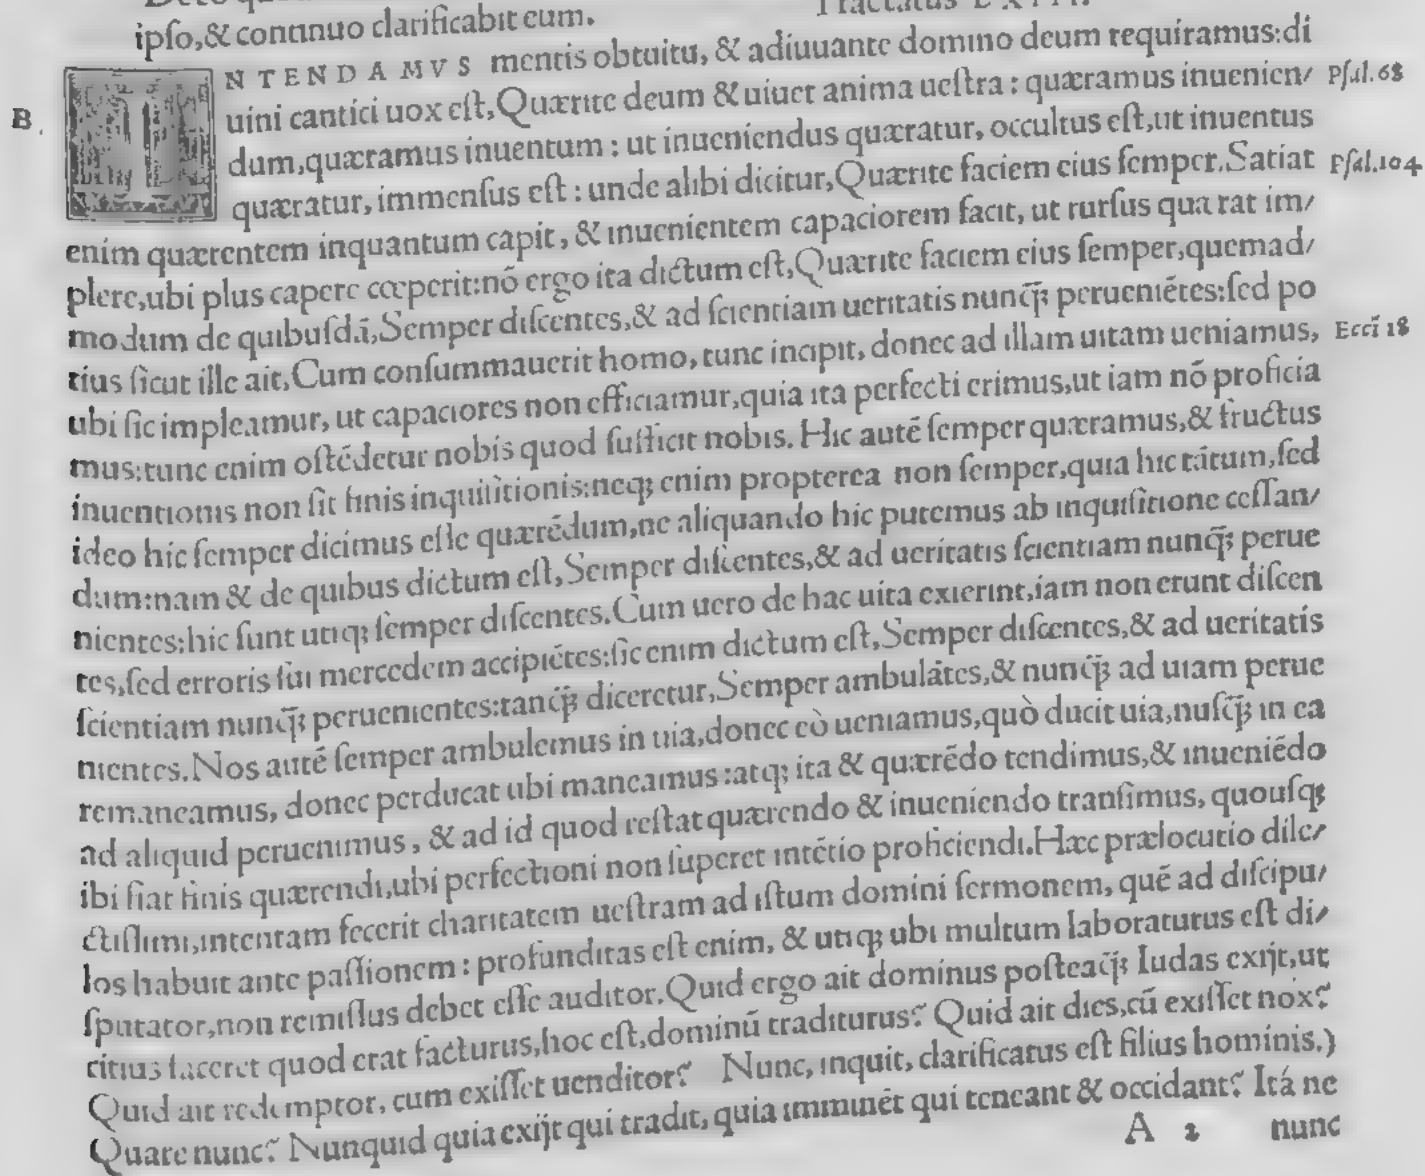 ipſo,& continuo clarificabit eum. Tractatus LXIII.
INTENDAMVS mentis obtuitu, & adiuuante domino deum requiramus:di
B uini cantici uox eſt,Quærite deum & uiuet anima ueſtra : quæramus inuenien/ Pſal.68
dum,quæramus inuentum : ut inueniendus quæratur, occultus eſt,ut inuentus
quæratur, immenſus eſt : unde alibi dicitur,Quærite faciem eius ſemper.Satiat Pſal.104
enim quærentem inquantum capit, & inuenientem capaciorem facit, ut rurſus qua rat im/
plere,ubi plus capere cœperit:nõ ergo ita dictum eſt,Quærite faciem eius ſemper,quemad/
modum de quibuſdã,Semper diſcentes,& ad ſcientiam ueritatis nunq̃ꝫ perueniẽtes:ſed po
tius ſicut ille ait,Cum conſummauerit homo, tunc incipit, donec ad illam uitam ueniamus, Eccĩ 18
ubi ſic impleamur, ut capaciores non efficiamur,quia ita perfecti erimus,ut iam nõ proficia
mus:tunc enim oſtẽdetur nobis quod ſufficit nobis. Hic autẽ ſemper quæramus,& fructus
inuentionis non ſit finis inquiſitionis:neqꝫ enim propterea non ſemper,quia hic tãtum,ſed
ideo hic ſemper dicimus eſſe quærẽdum,ne aliquando hic putemus ab inquiſitione ceſſan/
dum:nam & de quibus dictum eſt,Semper diſcentes,& ad ueritatis ſcientiam nunq̃ꝫ perue
nientes:hic ſunt utiqꝫ ſemper diſcentes.Cum uero de hac uita exierint,iam non erunt diſcen
tes,ſed erroris ſui mercedem accipiẽtes:ſic enim dictum eſt,Semper diſcentes,& ad ueritatis
ſcientiam nunq̃ꝫ peruenientes:tanq̃ꝫ diceretur,Semper ambulãtes,& nunq̃ꝫ ad uiam perue
nientes.Nos autẽ ſemper ambulemus in uia,donec eò ueniamus,quò ducit uia,nuſq̃ꝫ in ea
remaneamus, donec perducat ubi maneamus:atqꝫ ita & quærẽdo tendimus,& inueniẽdo
ad aliquid peruenimus, & ad id quod reſtat quærendo & inueniendo tranſimus, quouſqꝫ
ibi fiat finis quærendi,ubi perfectioni non ſuperet intẽtio proficiendi.Hæc prælocutio dile/
ctiſſimi,intentam fecerit charitatem ueſtram ad iſtum domini ſermonem, quẽ ad diſcipu/
los habuit ante paſſionem : profunditas eſt enim, & utiqꝫ ubi multum laboraturus eſt di/
ſputator,non remiſſus debet eſſe auditor.Quid ergo ait dominus poſteaq̃ꝫ Iudas exijt,ut
citius faceret quod erat facturus,hoc eſt,dominũ traditurus? Quid ait dies,cũ exiſſet nox?
Quid ait redemptor, cum exiſſet uenditor? Nunc, inquit, clarificatus eſt filius hominis.)
Quare nunc? Nunquid quia exijt qui tradit, quia imminẽt qui teneant & occidant? Itá ne
A 2 nunc